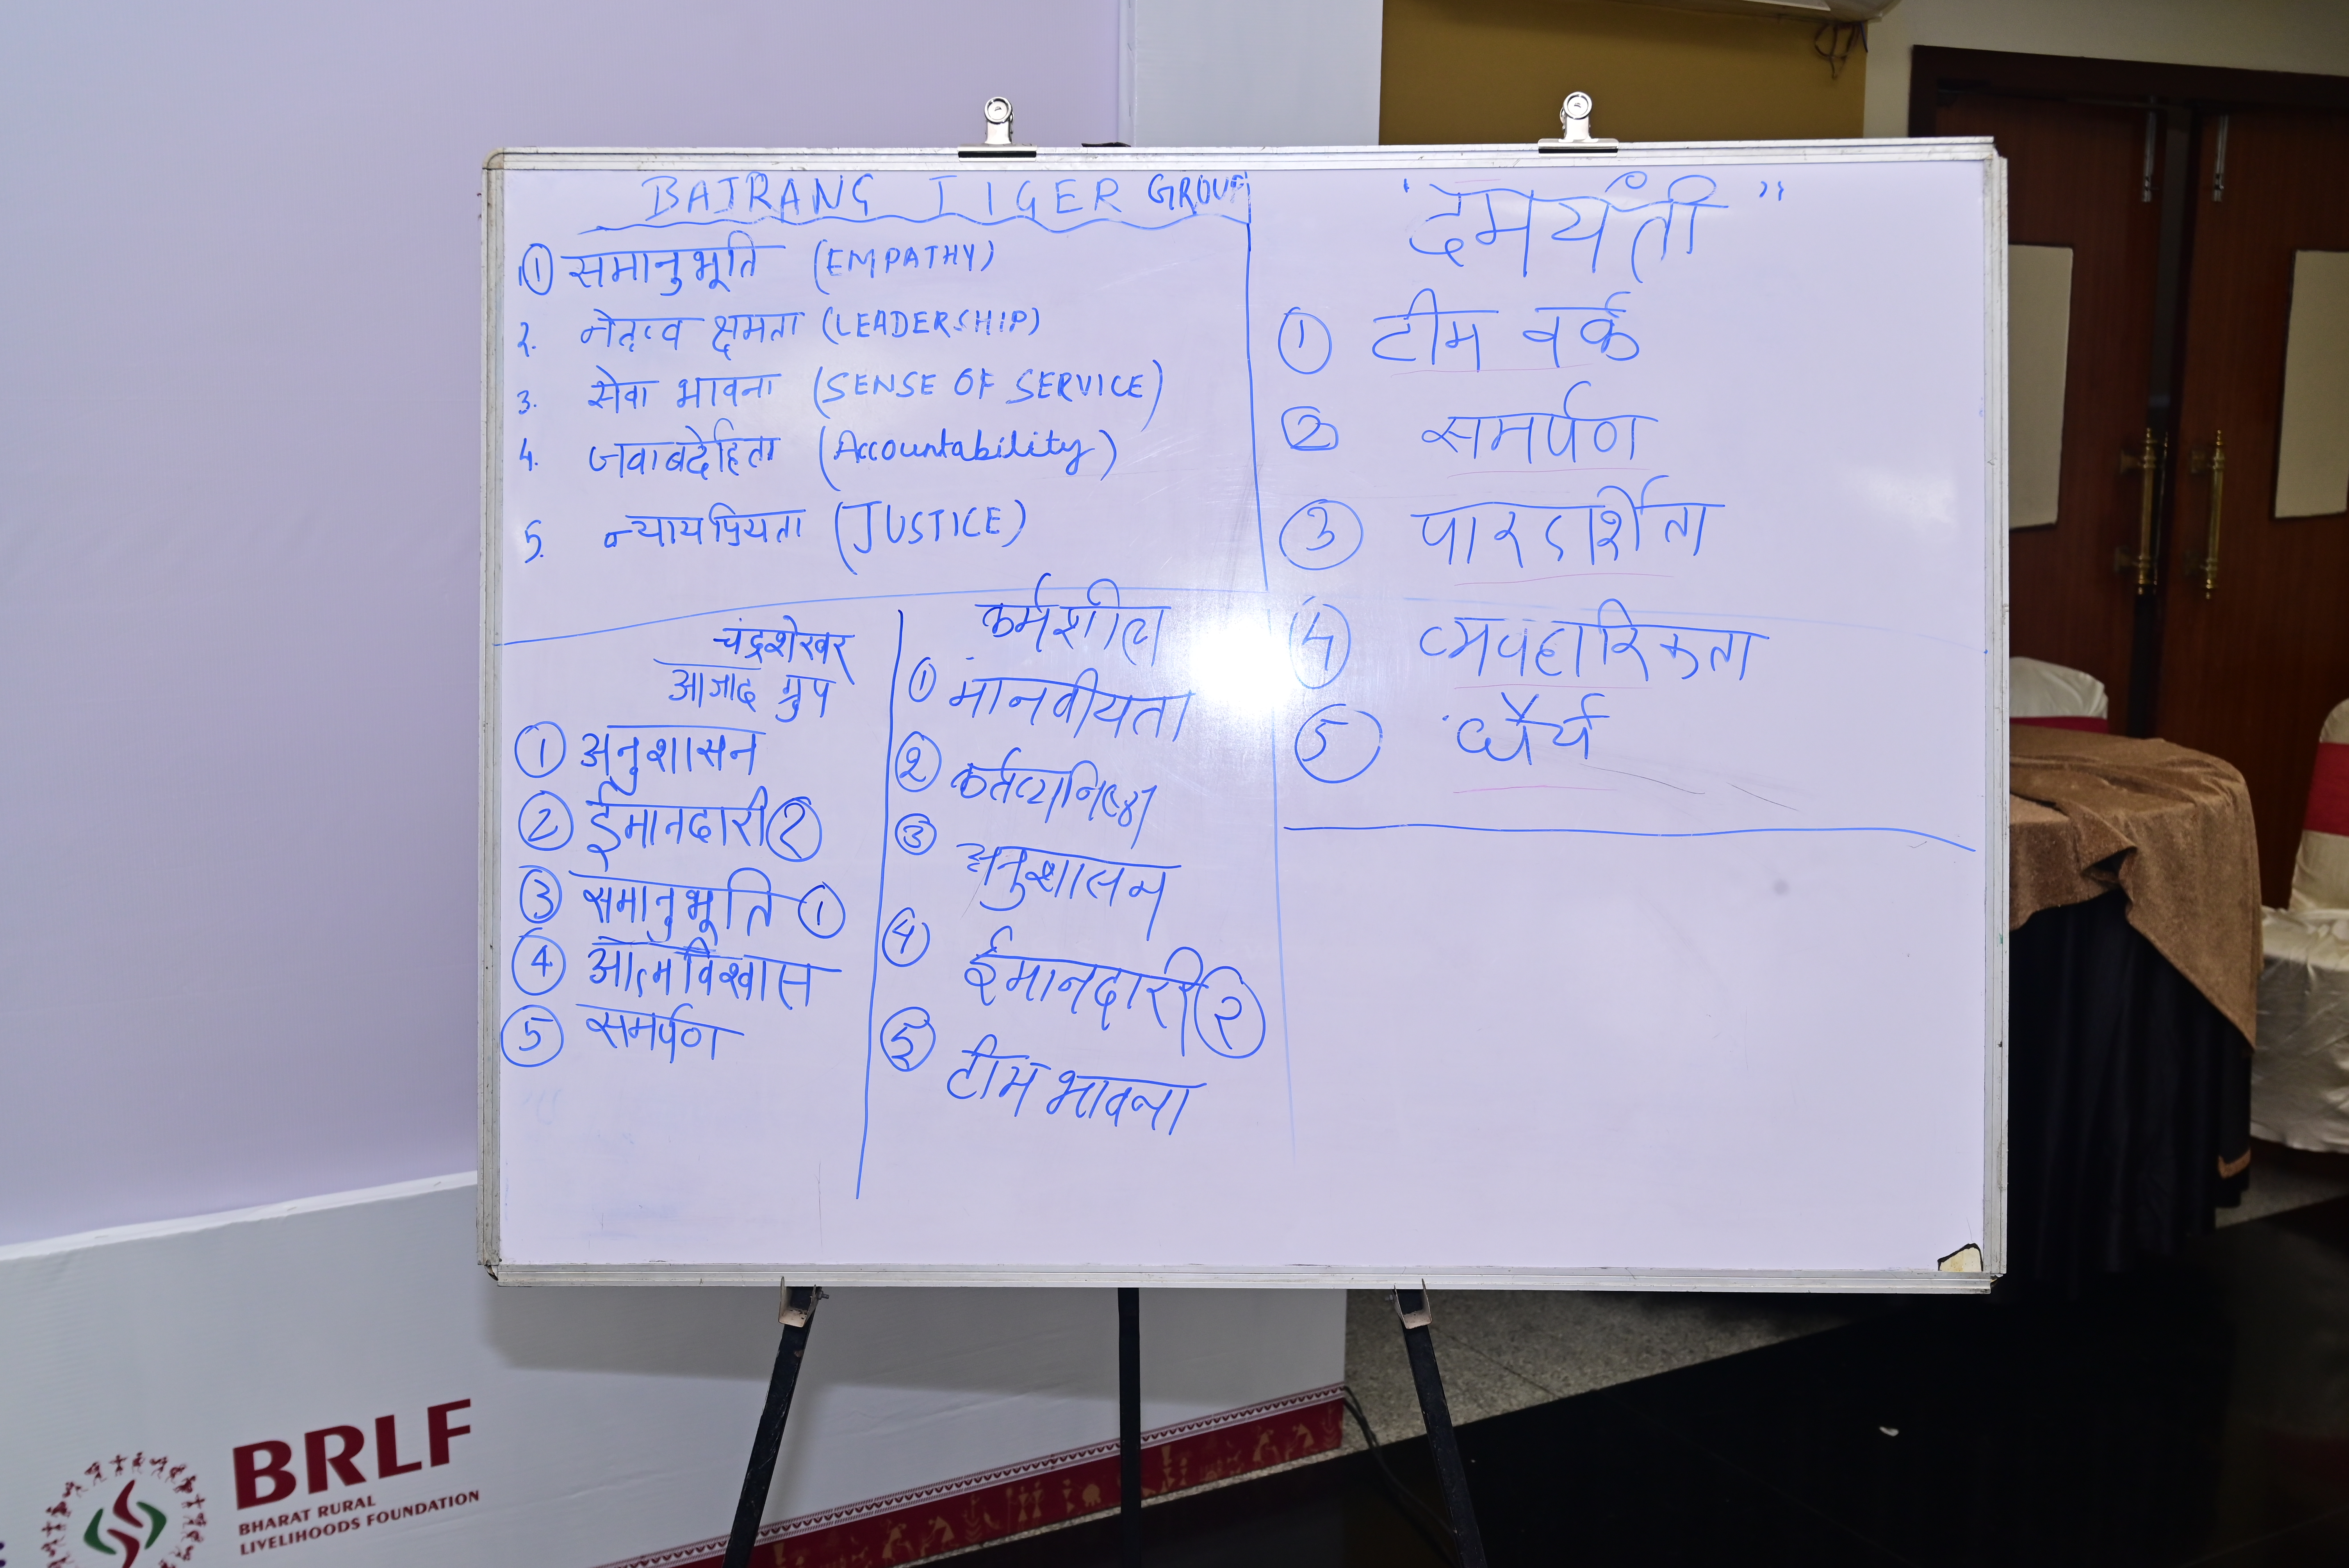 BAJRANG TIGER GROUP
① समानुभूति (EMPATHY)
2. नेतृत्व क्षमता (LEADERSHIP)
3. सेवा भावना (SENSE OF SERVICE)
4. जवाबदेहिता (Accountability)
5. न्यायप्रियता (JUSTICE)
"दमयंती"
① टीम वर्क
② समर्पण
③ पारदर्शिता
④ व्यवहारिकता
⑤ धैर्य
चंद्रशेखर
आजाद ग्रुप
① अनुशासन
② ईमानदारी ②
③ समानुभूति ①
④ आत्मविश्वास
⑤ समर्पण
कर्मशील
① मानवीयता
② कर्तव्यनिष्ठा
③ अनुशासन
④ ईमानदारी ②
⑤ टीम भावना
BRLF
BHARAT RURAL
LIVELIHOODS FOUNDATION